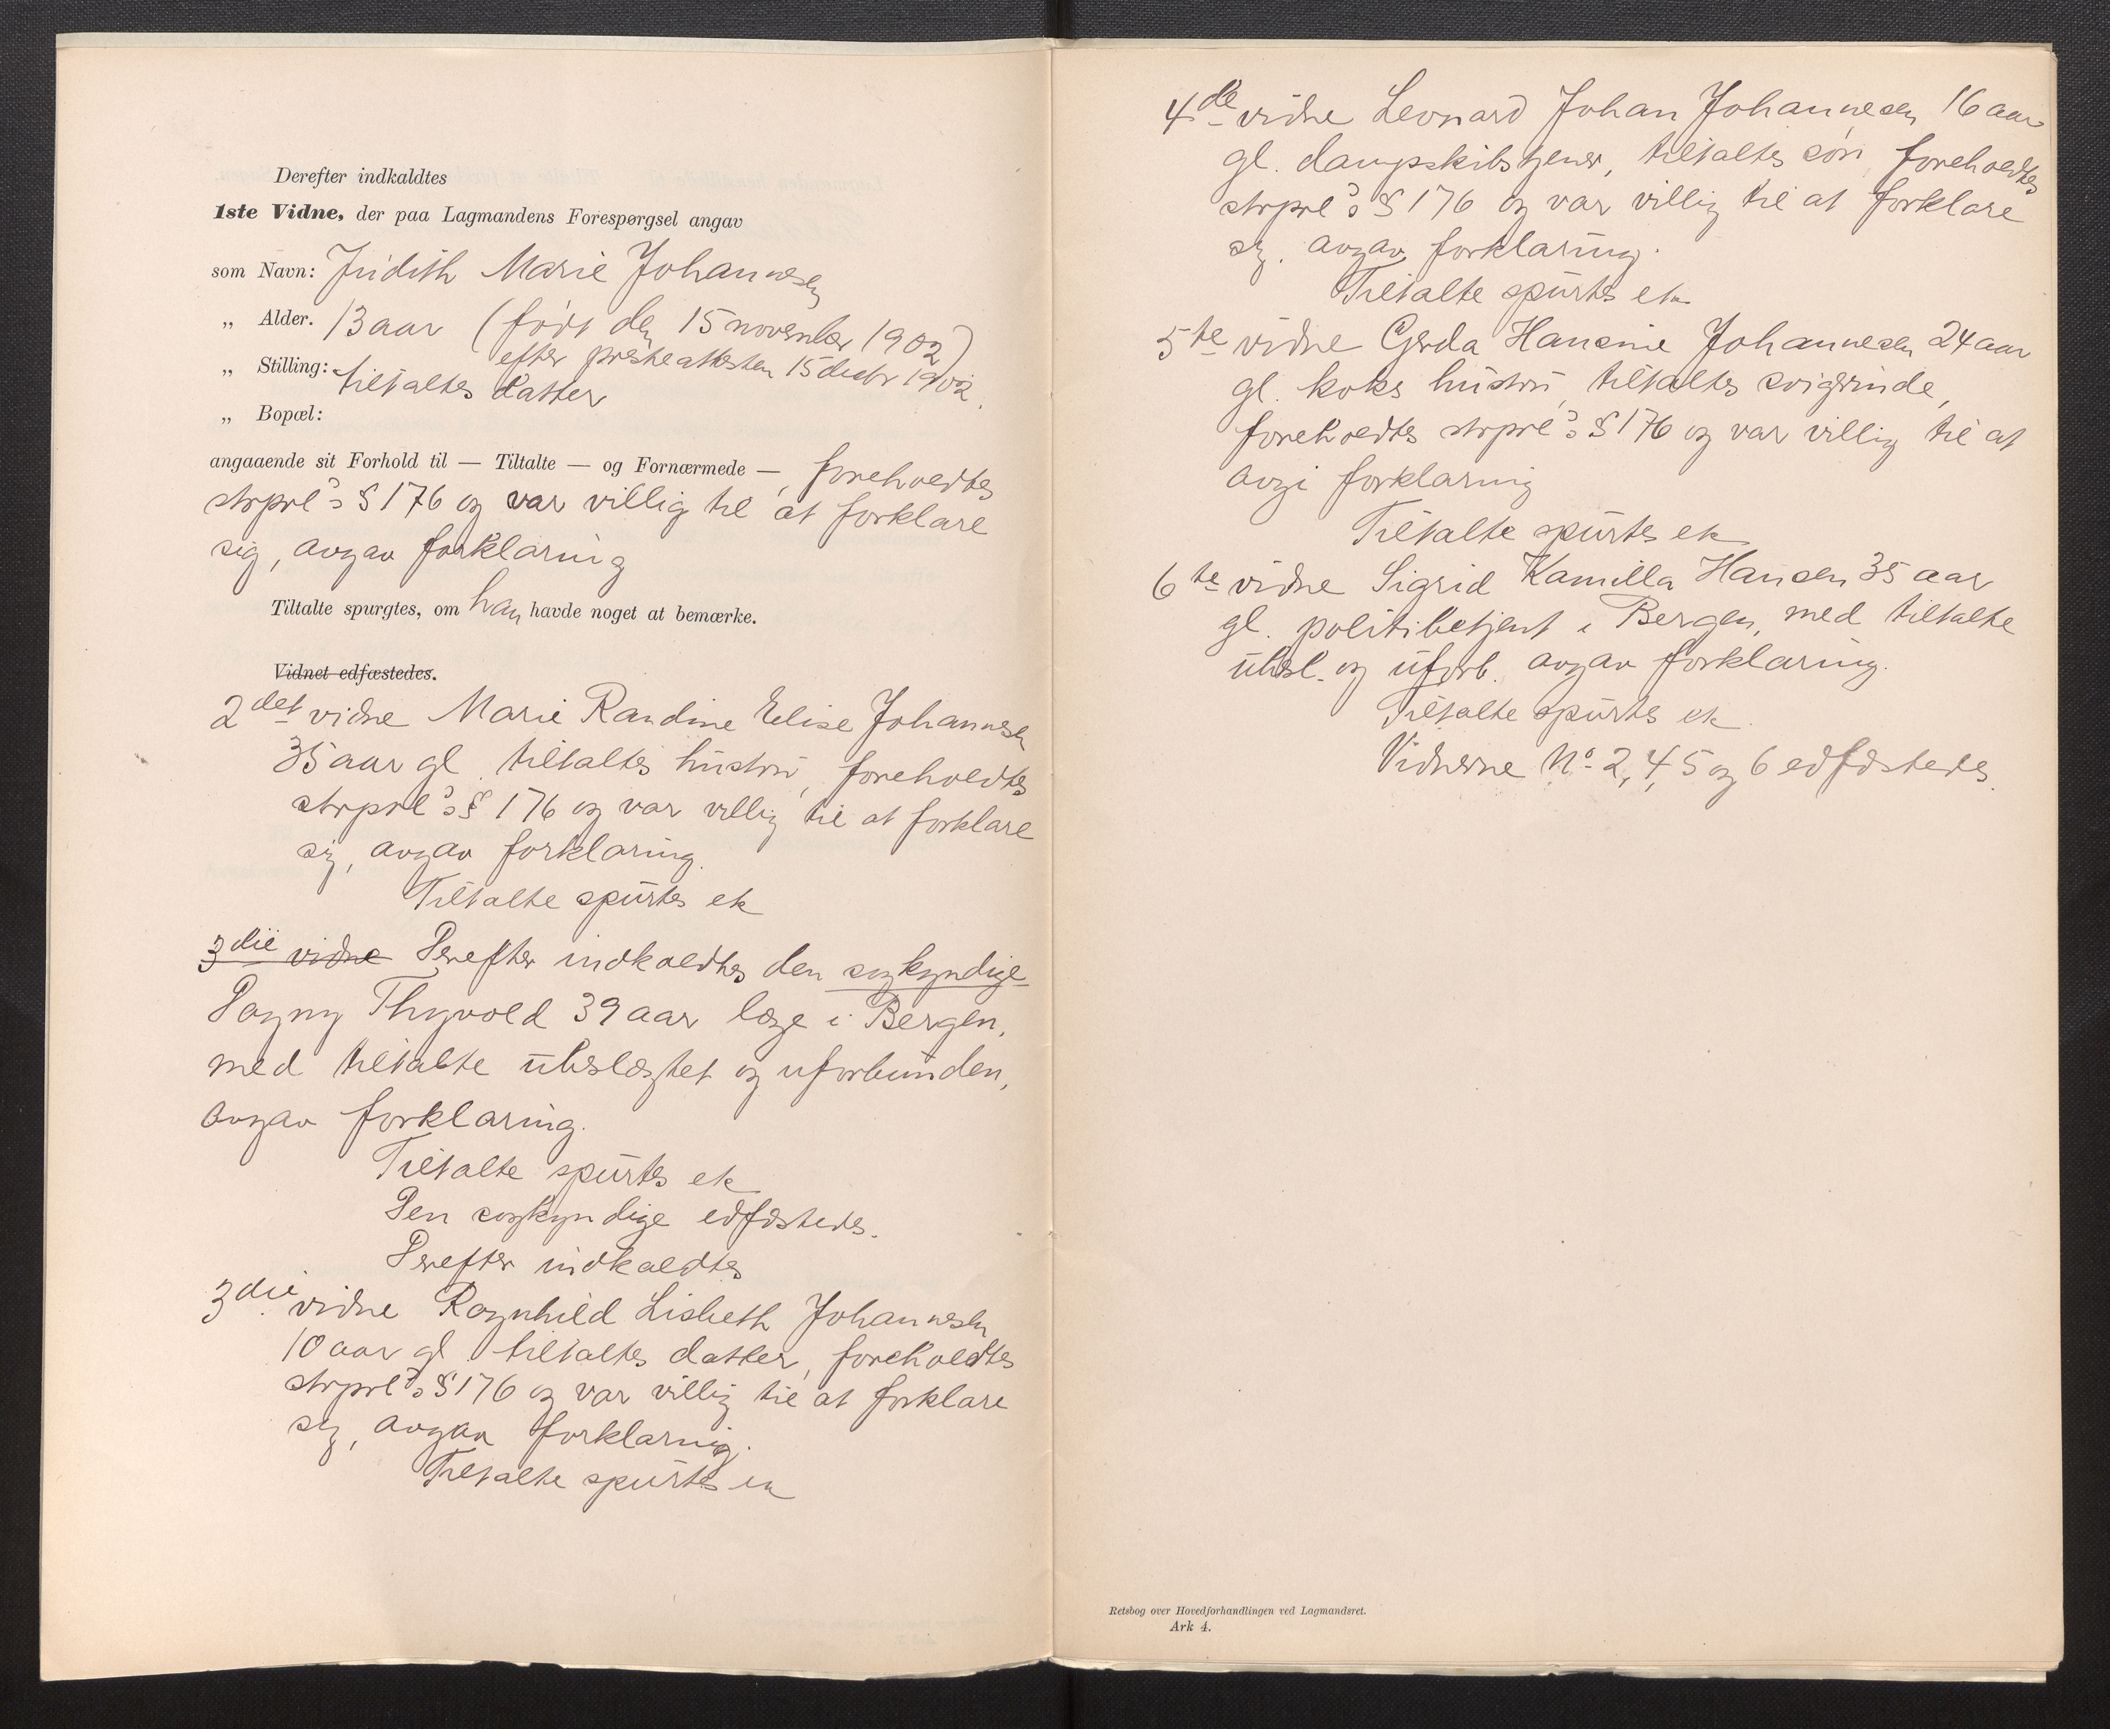 Derefter indkaldtes
1ste Vidne, der paa Lagmandens Forespørgsel angav
som Navn: Judith Marie Johannesen
„ Alder. 13 aar (født den 15 november 1902)
efter presteattesten 15 decbr 1902.
„ Stilling: tiltaltes datter
„ Bopæl:
angaaende sit Forhold til — Tiltalte — og Fornærmede —, foreholdtes
strprl's § 176 og var villig til at forklare
sig, avgav forklaring
Tiltalte spurgtes, om han havde noget at bemærke.
Vidnet edfæstedes.
2det vidne Marie Randine Elise Johannesen
35 aar gl. tiltaltes hustru, foreholdtes
strprl's § 176 og var villig til at forklare
sig, avgav forklaring.
Tiltalte spurtes etc
3die vidne Derefter indkaldtes den sagkyndige
Dagny Thyvold 39 aar læge i Bergen,
med tiltalte ubeslægtet og uforbunden,
avgav forklaring.
Tiltalte spurtes etc
Den sagkyndige edfæstedes.
Derefter indkaldtes
3die vidne Ragnhild Lisbeth Johannesen
10 aar gl tiltaltes datter, foreholdtes
strprl's § 176 og var villig til at forklare
sig, avgav forklaring.
Tiltalte spurtes etc
4de vidne Leonard Johan Johannesen 16 aar
gl. dampskibstjener, tiltaltes søn, foreholdtes
strprl's § 176 og var villig til at forklare
sig. avgav forklaring.
Tiltalte spurtes etc
5te vidne Gerda Hansine Johannesen 24 aar
gl. koks hustru, tiltaltes svigerinde,
foreholdtes strprl's § 176 og var villig til at
avgi forklaring
Tiltalte spurtes etc
6te vidne Sigrid Kamilla Hansen 35 aar
gl. politibetjent i Bergen, med tiltalte
ubesl. og uforb. avgav forklaring.
Tiltalte spurtes etc.
Vidnerne No 2, 4, 5 og 6 edfæstedes.
Retsbog over Hovedforhandlingen ved Lagmandsret.
Ark 4.